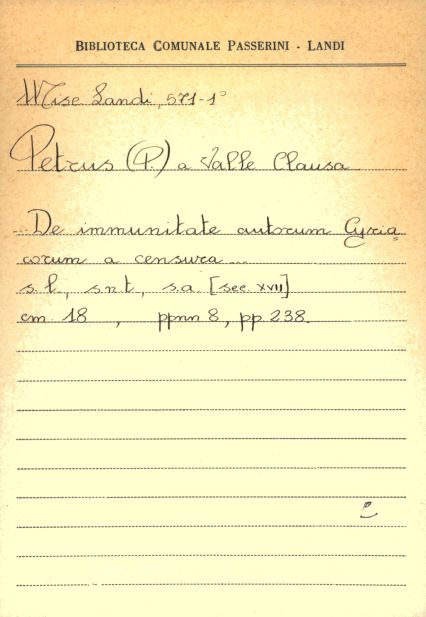 BIBLIOTECA COMUNALE PASSERINI - LANDI
Misc Landi, 571-1°
Petrus (P.) a Valle Clausa
...De immunitate autorum Cyria=
corum a censura...
s. l., s. n. t., s. a. [sec. XVII]
cm. 18 , ppnn 8, pp. 238.